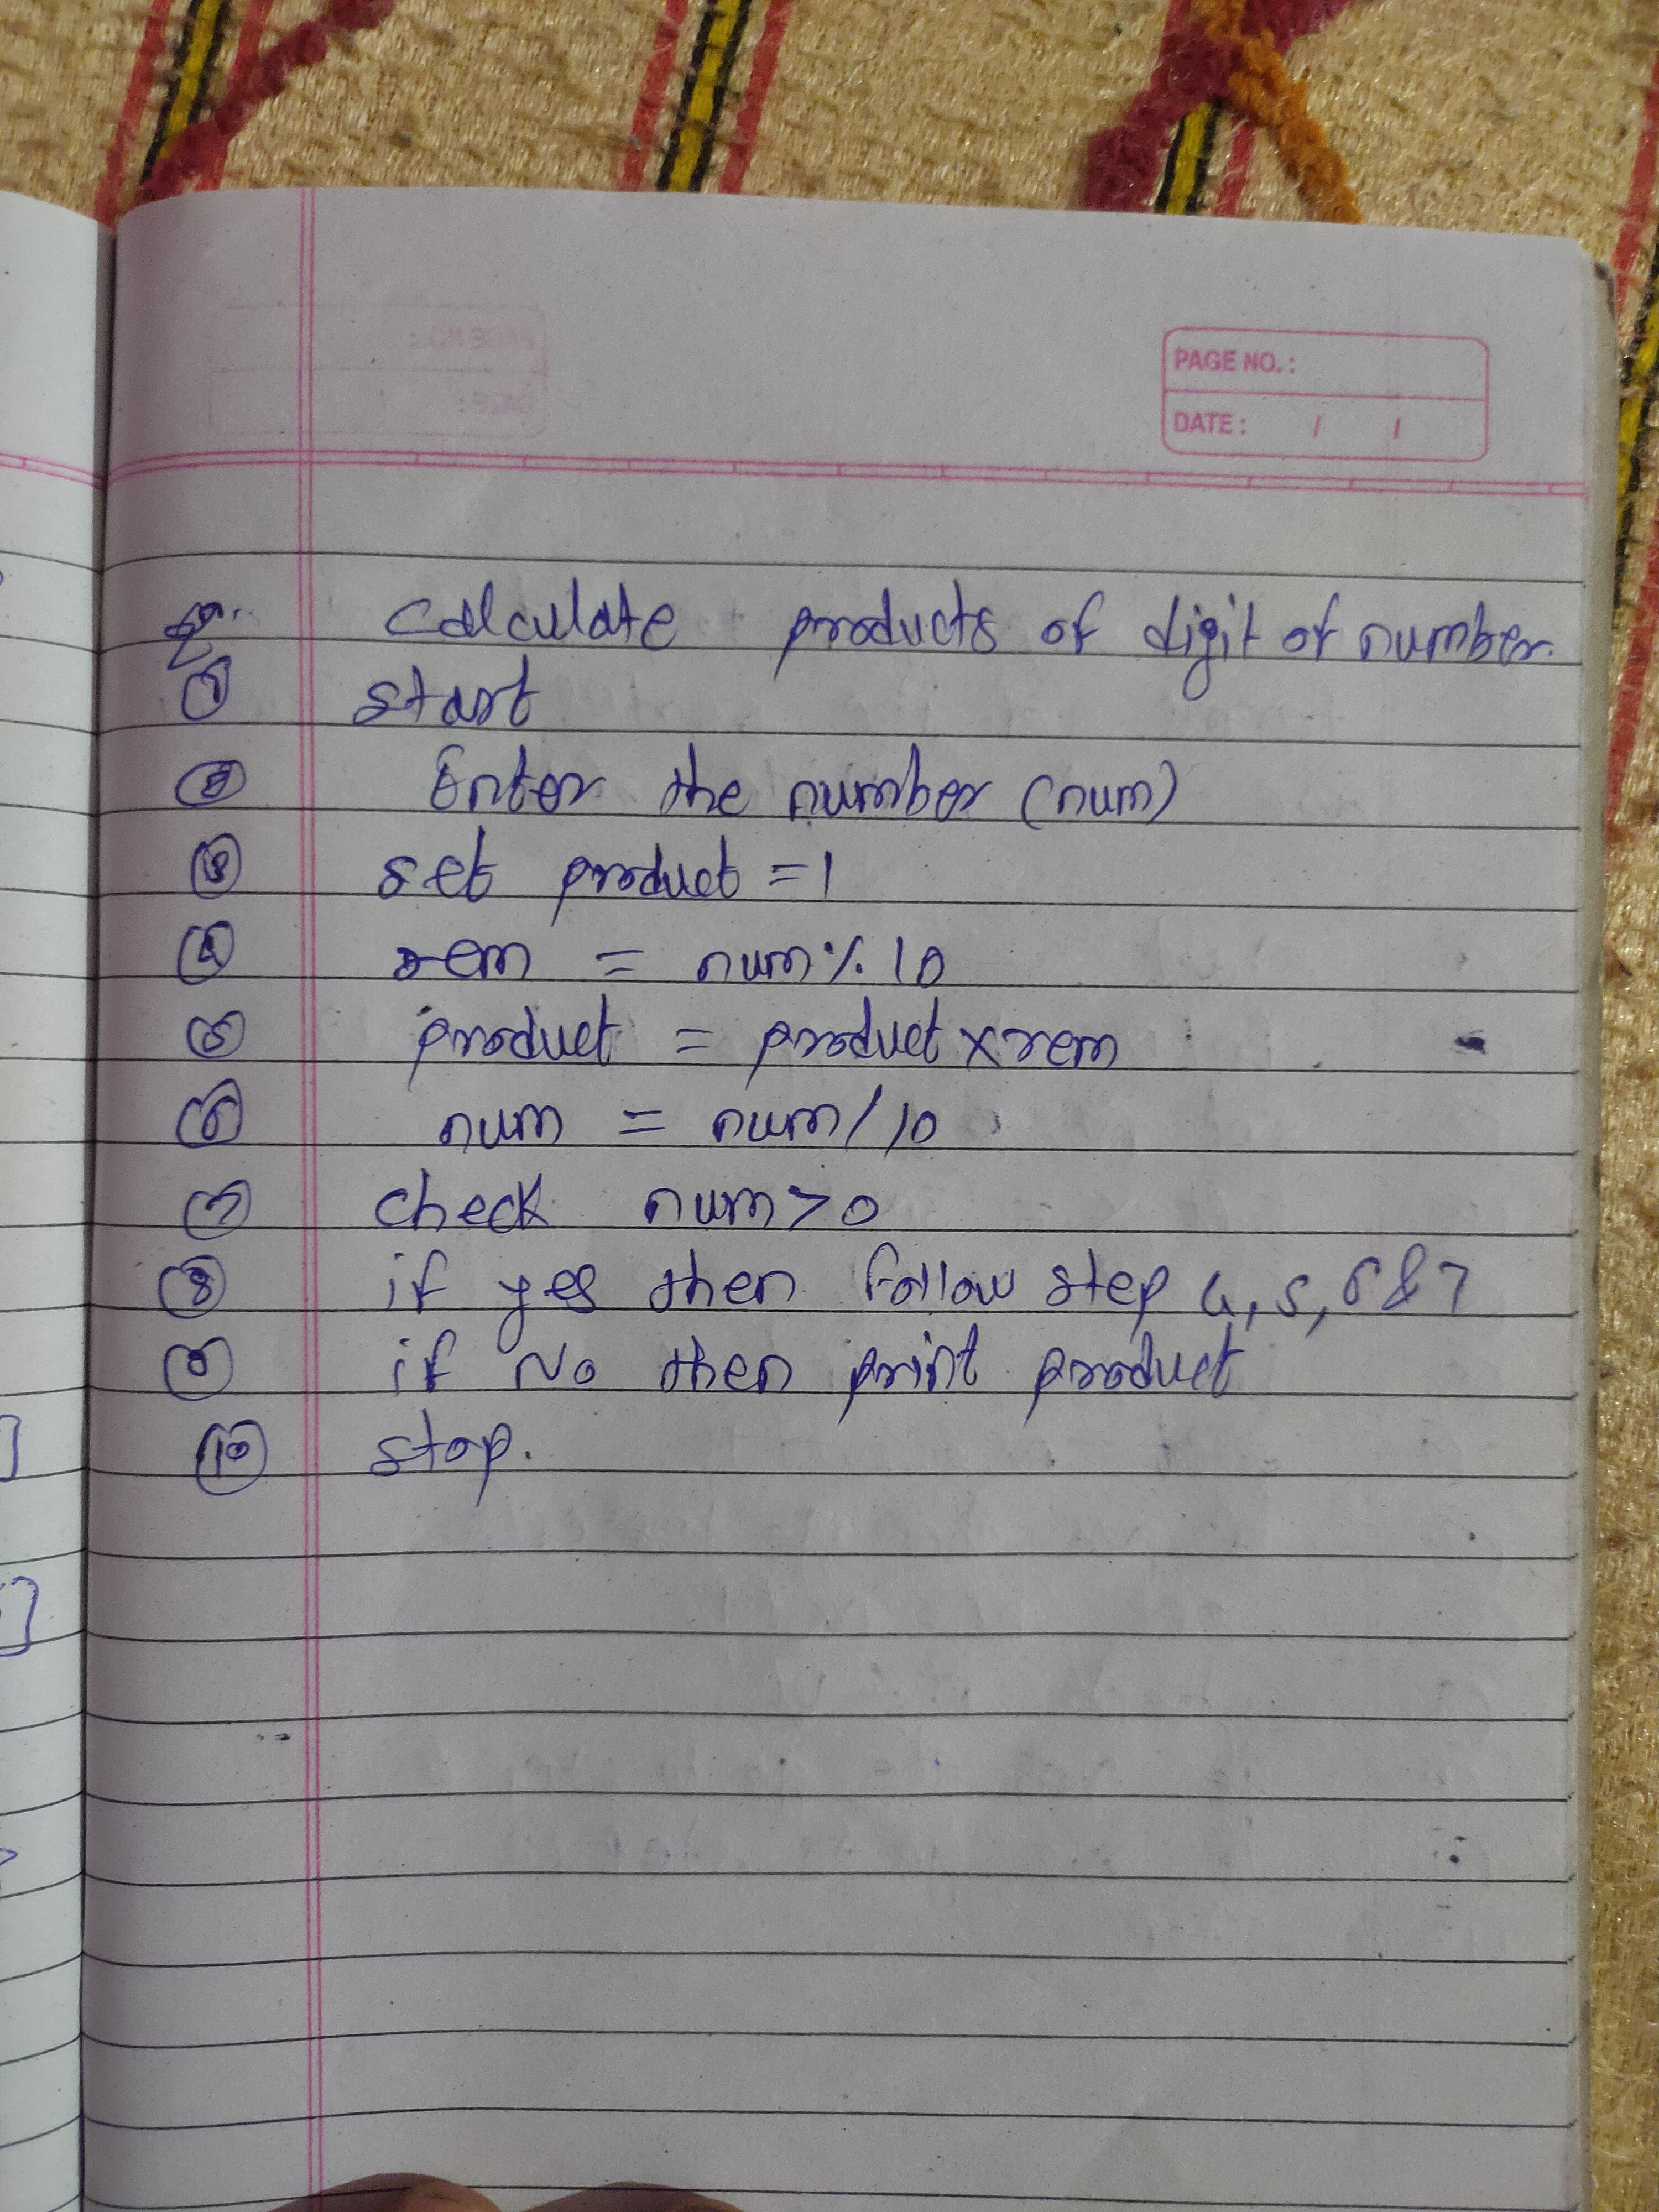 PAGE NO.:
DATE: / /
Calculate products of digit of number.
① start
② Enter the number (num)
③ set product = 1
④ rem = num % 10
⑤ product = product x rem
⑥ num = num / 10
⑦ check num > 0
⑧ if yes then follow step 4, 5, 6 & 7
⑨ if No then print product
⑩ stop.